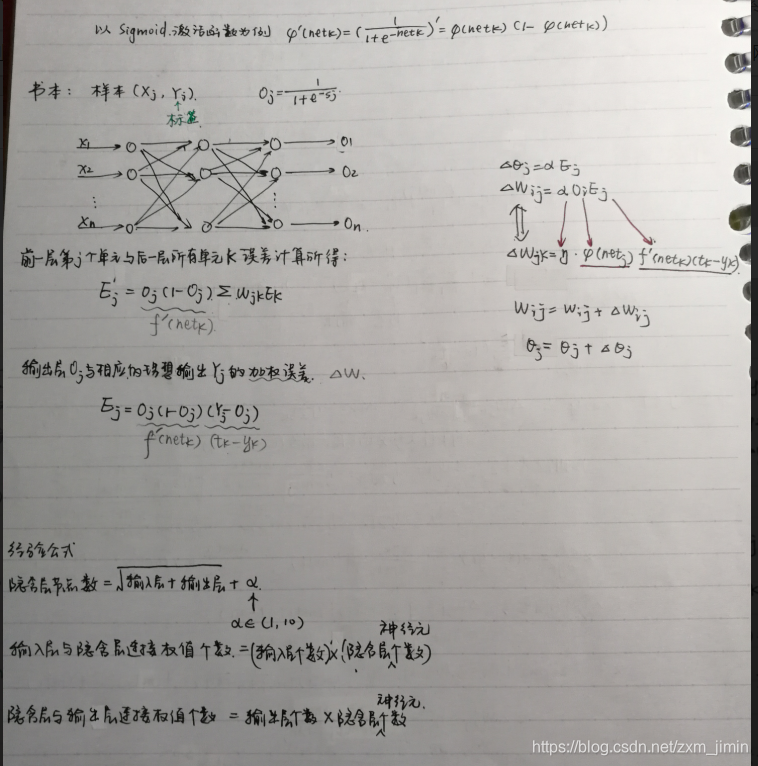 以 Sigmoid 激活函数为例 φ'(netk)=(1/(1+e^-netk))'=φ(netk)(1-φ(netk))
书本: 样本(Xj, Yj). Oj=1/(1+e^-sj)
↑
标签
X1 O1
X2 O2
⋮ ⋮
Xn On
△θj=αEj
△Wij=αOiEj
△Wjk=η·φ(netj) f'(netk)(tk-yk)
Wij=Wij+△Wij
θj=θj+△θj
前一层第j个单元与后一层所有单元K误差计算所得:
E'j=Oj(1-Oj)ΣWjkEk
f'(netk)
输出层Oj与相应的理想输出Yj的加权误差. △W.
Ej=Oj(1-Oj)(Yj-Oj)
f'(netk) (tk-yk)
经验公式
隐含层节点数=√输入层+输出层 + α
↑
α∈(1,10)
神经元
输入层与隐含层连接权值个数=(输入层个数)×(隐含层个数)
神经元
隐含层与输出层连接权值个数 = 输出层个数×隐含层个数
https://blog.csdn.net/zxm_jimin